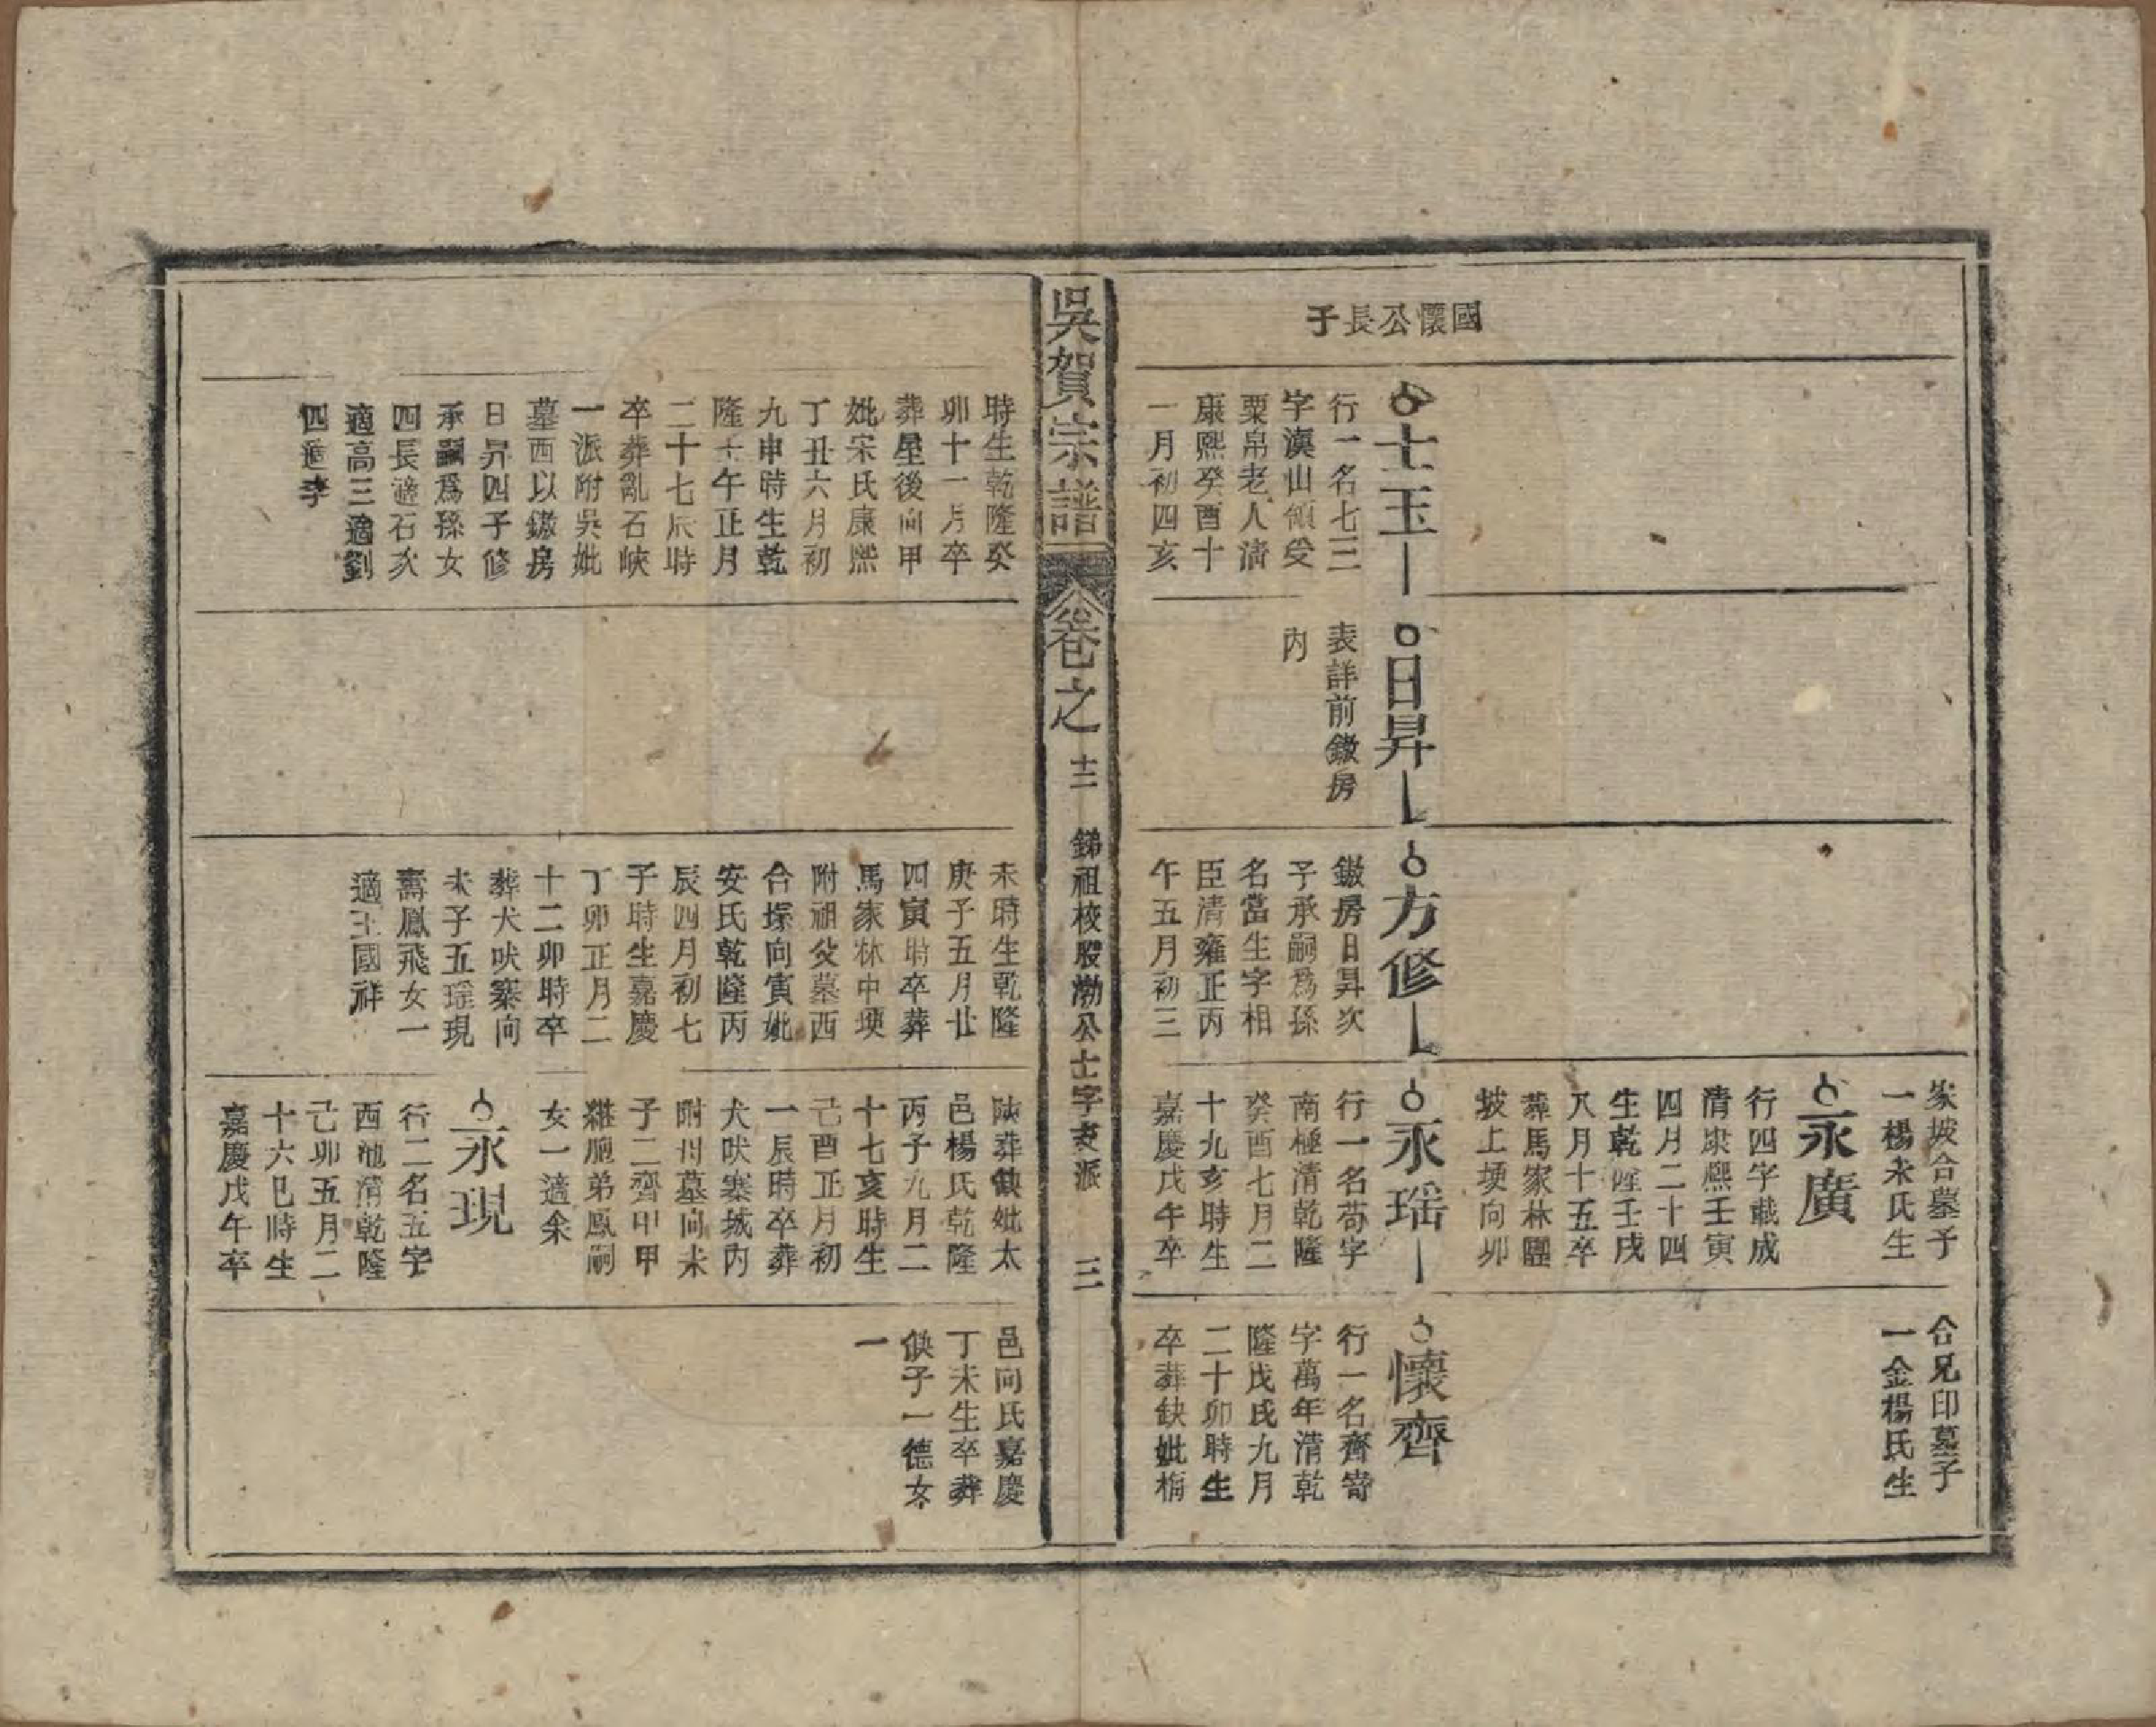 國懷公長子
士玉
行一名七三
字漢山頒受
粟帛老人清
康熙癸酉十
一月初四亥
日昇
表詳前鏾房
內
方修
鏾房日昇次
子承嗣爲孫
名當生字相
臣清雍正丙
午五月初三
家坡合墓子
一楊永氏生
永廣
行四字載成
清康熙壬寅
四月二十四
生乾隆壬戌
八月十五卒
葬馬家林團
坡上埂向卯
永瑶
行一名苟字
南極清乾隆
癸酉七月二
十九亥時生
嘉慶戊午卒
合兄印墓子
一金楊氏生
懷齊
行一名齊嵜
字萬年清乾
隆戊戌九月
二十卯時生
卒葬缺妣桐
吳賀宗譜
卷之
十二
錦祖校股渤公士字支派
三
時生乾隆癸
卯十一月卒
葬星後向甲
妣宋氏康熙
丁丑六月初
九申時生乾
隆壬午正月
二十七辰時
卒葬亂石峽
一派附吳妣
墓西以鏾房
日昇四子修
承嗣爲孫女
四長適石次
適高三適劉
四適李
未時生乾隆
庚子五月廿
四寅時卒葬
馬家林中埂
附祖父墓西
合塚向寅妣
安氏乾隆丙
辰四月初七
子時生嘉慶
丁卯正月二
十二卯時卒
葬犬吠寨向
未子五瑶現
壽鳳飛女一
適王國祥
陝葬缺妣太
邑楊氏乾隆
丙子九月二
十七亥時生
己酉正月初
一辰時卒葬
犬吠寨城內
附州墓向未
子二齊甲甲
繼胞弟鳳嗣
女一適余
永現
行二名五字
西池清乾隆
己卯五月二
十六巳時生
嘉慶戊午卒
邑向氏嘉慶
丁未生卒葬
缺子一德女
一